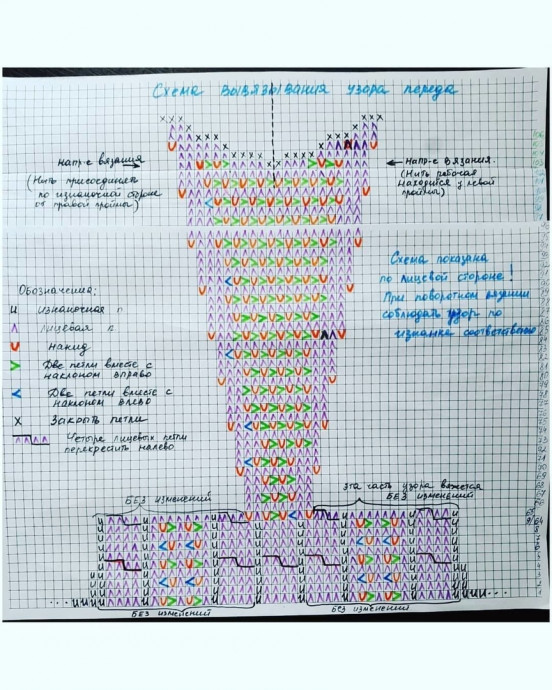 Схема вывязывания узора переда
напр-е вязания
(Нить присоединить
по изнаночной стороне
от правой проймы)
напр-е вязания.
(Нить рабочая
находится у левой
проймы)
Схема показана
по лицевой стороне!
При поворотном вязании
соблюдать узор по
изнанке соответственно
Обозначения:
U изнаночная п
Λ лицевая п
U накид
> Две петли вместе с
наклоном вправо
< Две петли вместе с
наклоном влево
X Закрыть петли
Четыре лицевых петли
перекрестить налево
БЕЗ изменений
эта часть узора вяжется
БЕЗ изменений
БЕЗ изменений
без изменений